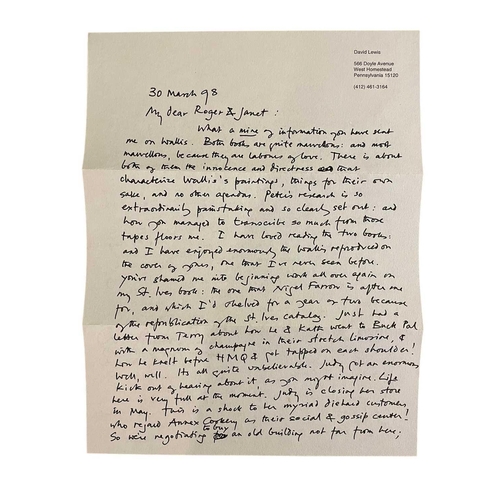 David Lewis
566 Doyle Avenue
West Homestead
Pennsylvania 15120
(412) 461-3164
30 March 98
My dear Roger & Janet:
What a mine of information you have sent
me on Wallis. Both books are quite marvellous: and most
marvellous, because they are labours of love. There is about
both of them the innocence and directness that
characterize Wallis's paintings, things for their own
sake, and no other agendas. Peter's research is so
extraordinarily painstaking and so clearly set out: and
how you managed to transcribe so much from those
tapes floors me. I have loved reading the two books:
and I have enjoyed enormously the Wallis reproduced on
the cover of yours, one that I've never seen before.
You've shamed me into beginning work all over again on
my St. Ives book: the one that Nigel Farrow is after me
for, and which I'd shelved for a year or two because
of the republication of the St Ives catalog. Just had a
letter from Terry about how he & Kath went to Buck Pal
with a magnum of champagne in their stretch limosine, &
how he knelt before HMQ & got tapped on each shoulder!
Well, well. Its all quite unbelievable. Judy got an enormous
kick out of hearing about it, as you might imagine. Life
here is very full at the moment. Judy is closing her store
in May. This is a shock to her myriad diehard customers
who regard Annex Cookery as their social & gossip center!
So we're negotiating to buy an old building not far from here;